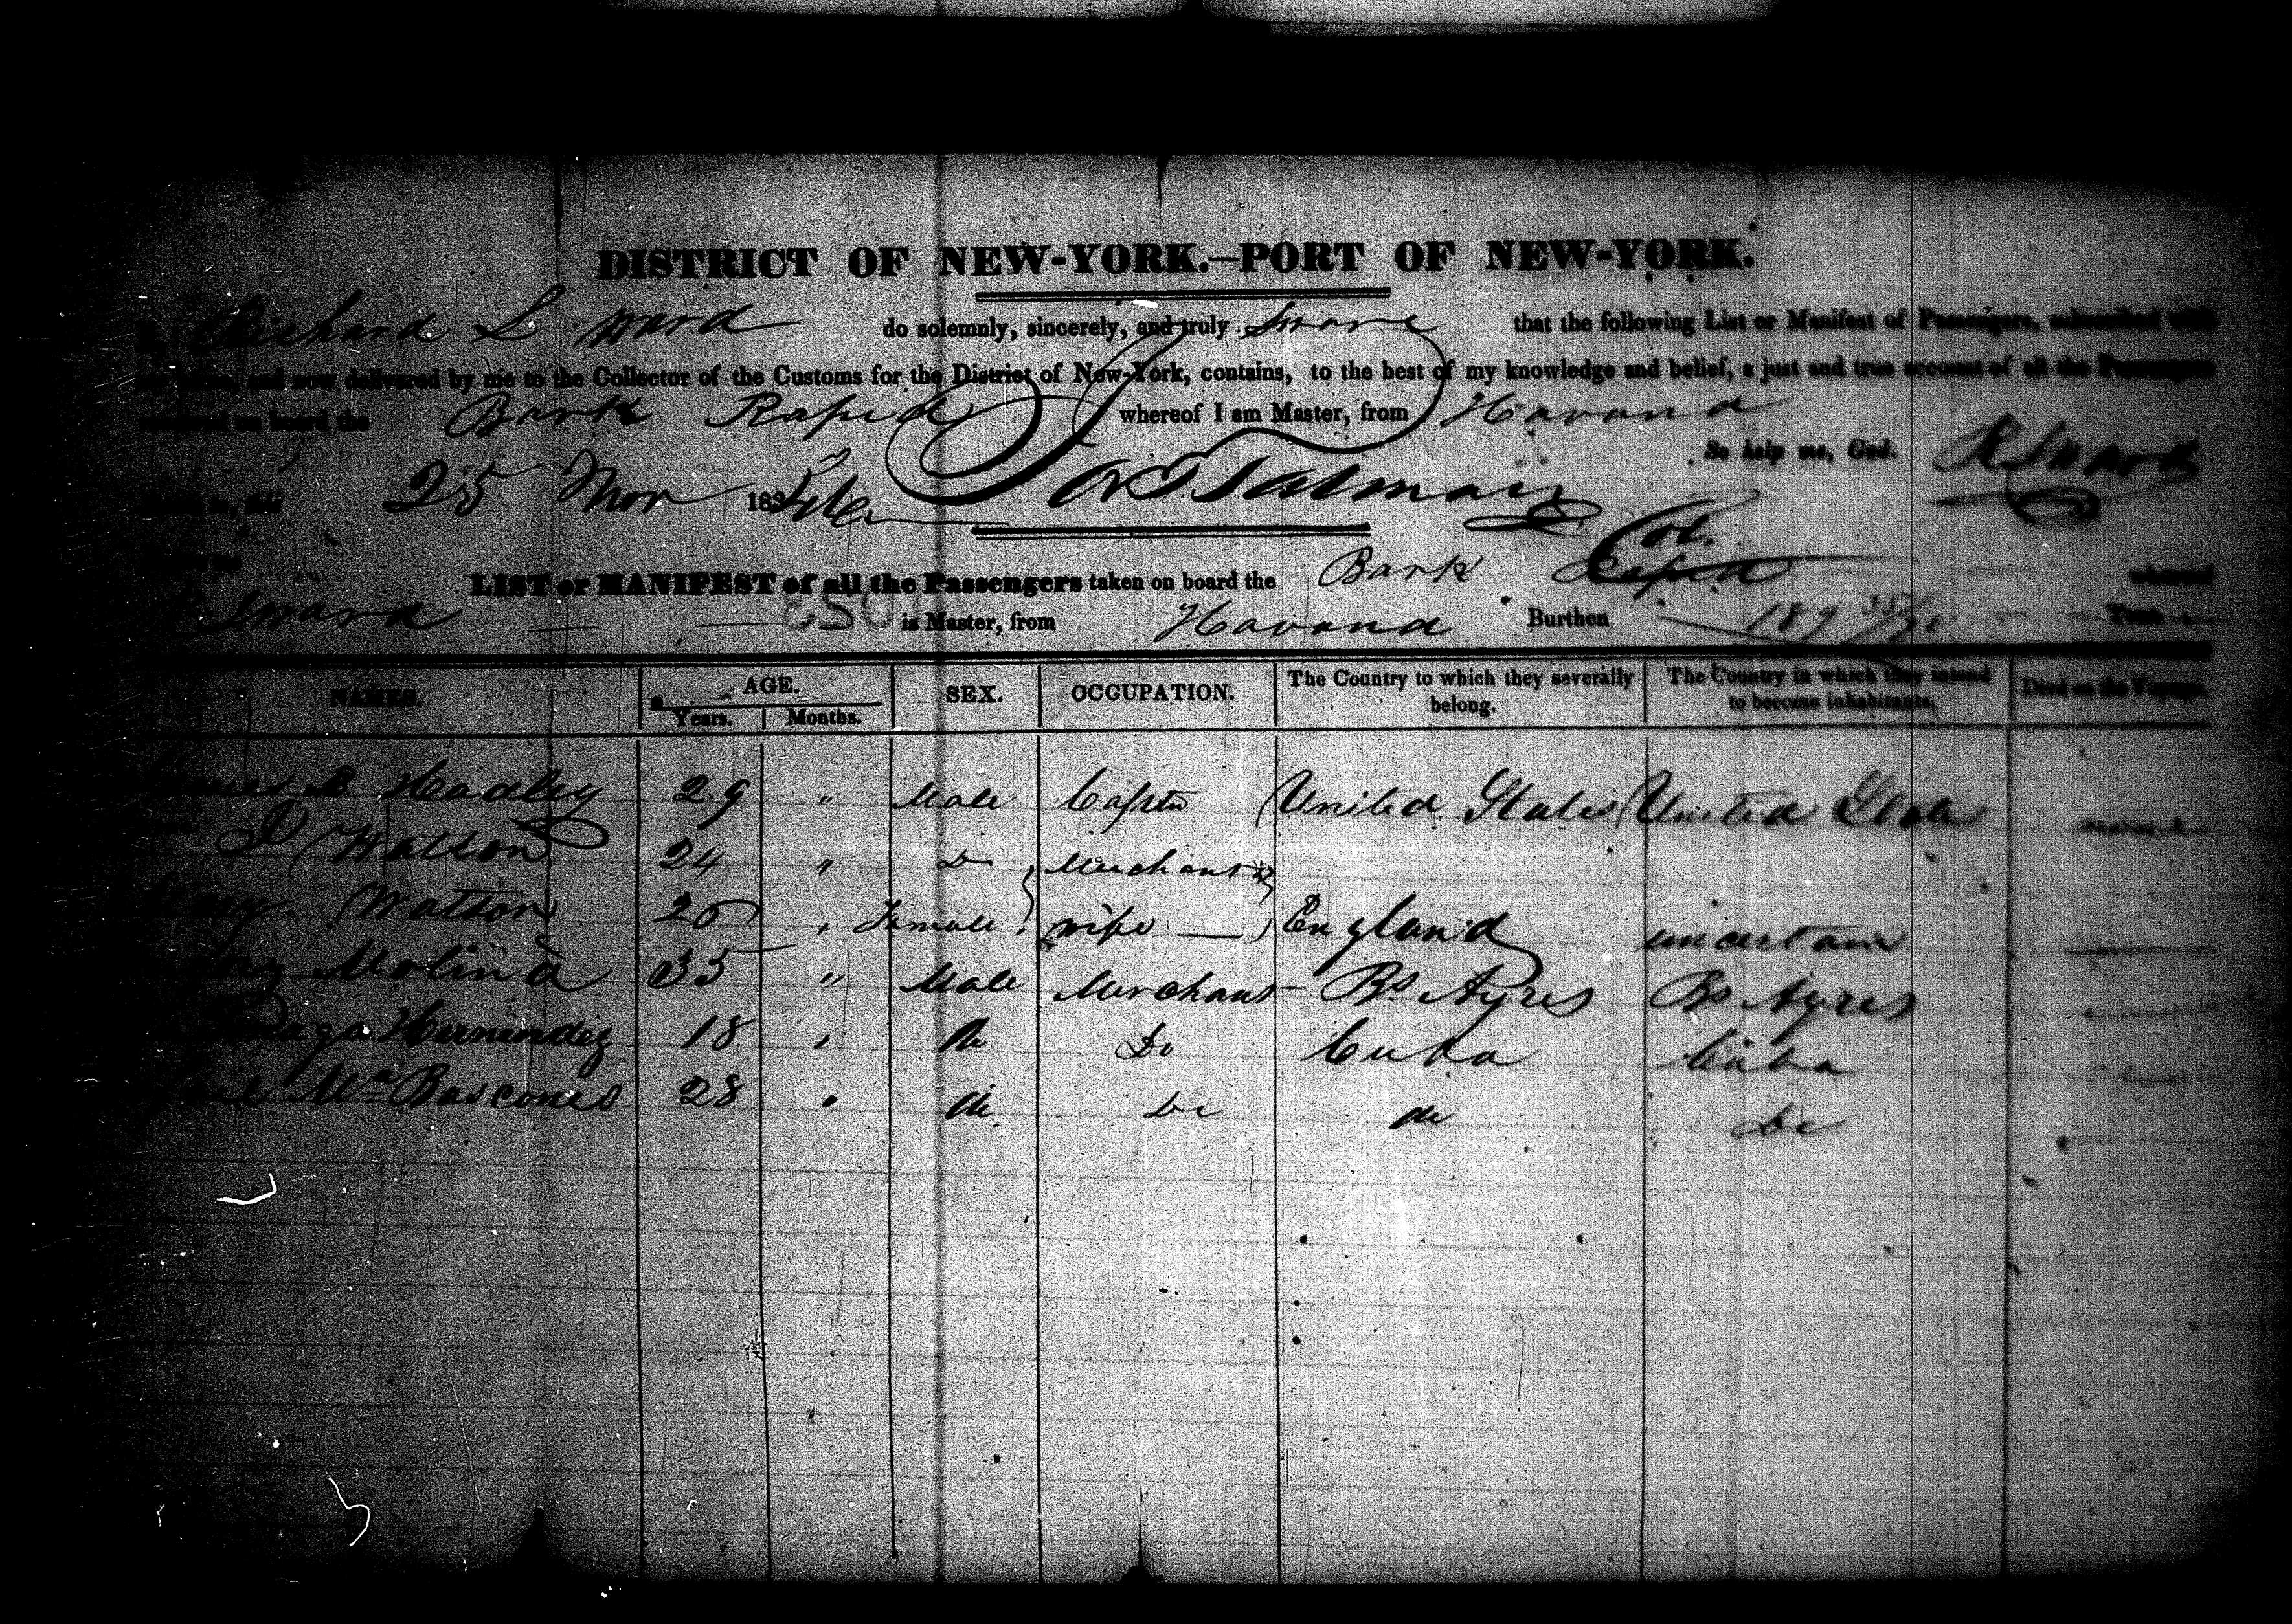 DISTRICT OF NEW-YORK.—PORT OF NEW-YORK.
Richard S. Ward do solemnly, sincerely, and truly Sware that the following List or Manifest of Passengers, subscribed with
and now delivered by me to the Collector of the Customs for the District of New-York, contains, to the best of my knowledge and belief, a just and true account of all the Passengers
on board the Bark Rapid whereof I am Master, from Havana
So help me, God. R S Ward
25 Nov 183
Col.
LIST or MANIFEST of all the Passengers taken on board the Bark Rapid whereof
Ward is Master, from Havana Burthen 189 Tons
NAMES. AGE. SEX. OCCUPATION. The Country to which they severally belong. The Country in which they intend to become inhabitants. Died on the Voyage.
Years. Months.
Hadley 29 " Male Captn United States United States
Watson 24 " Do Merchant
Watson 20 " Female wife England uncertain
Molina 35 " Male Merchant Bs Ayres Bs Ayres
Hernindez 18 " Do Do Cuba Cuba
Ma Bascones 28 " Do Do Do Do